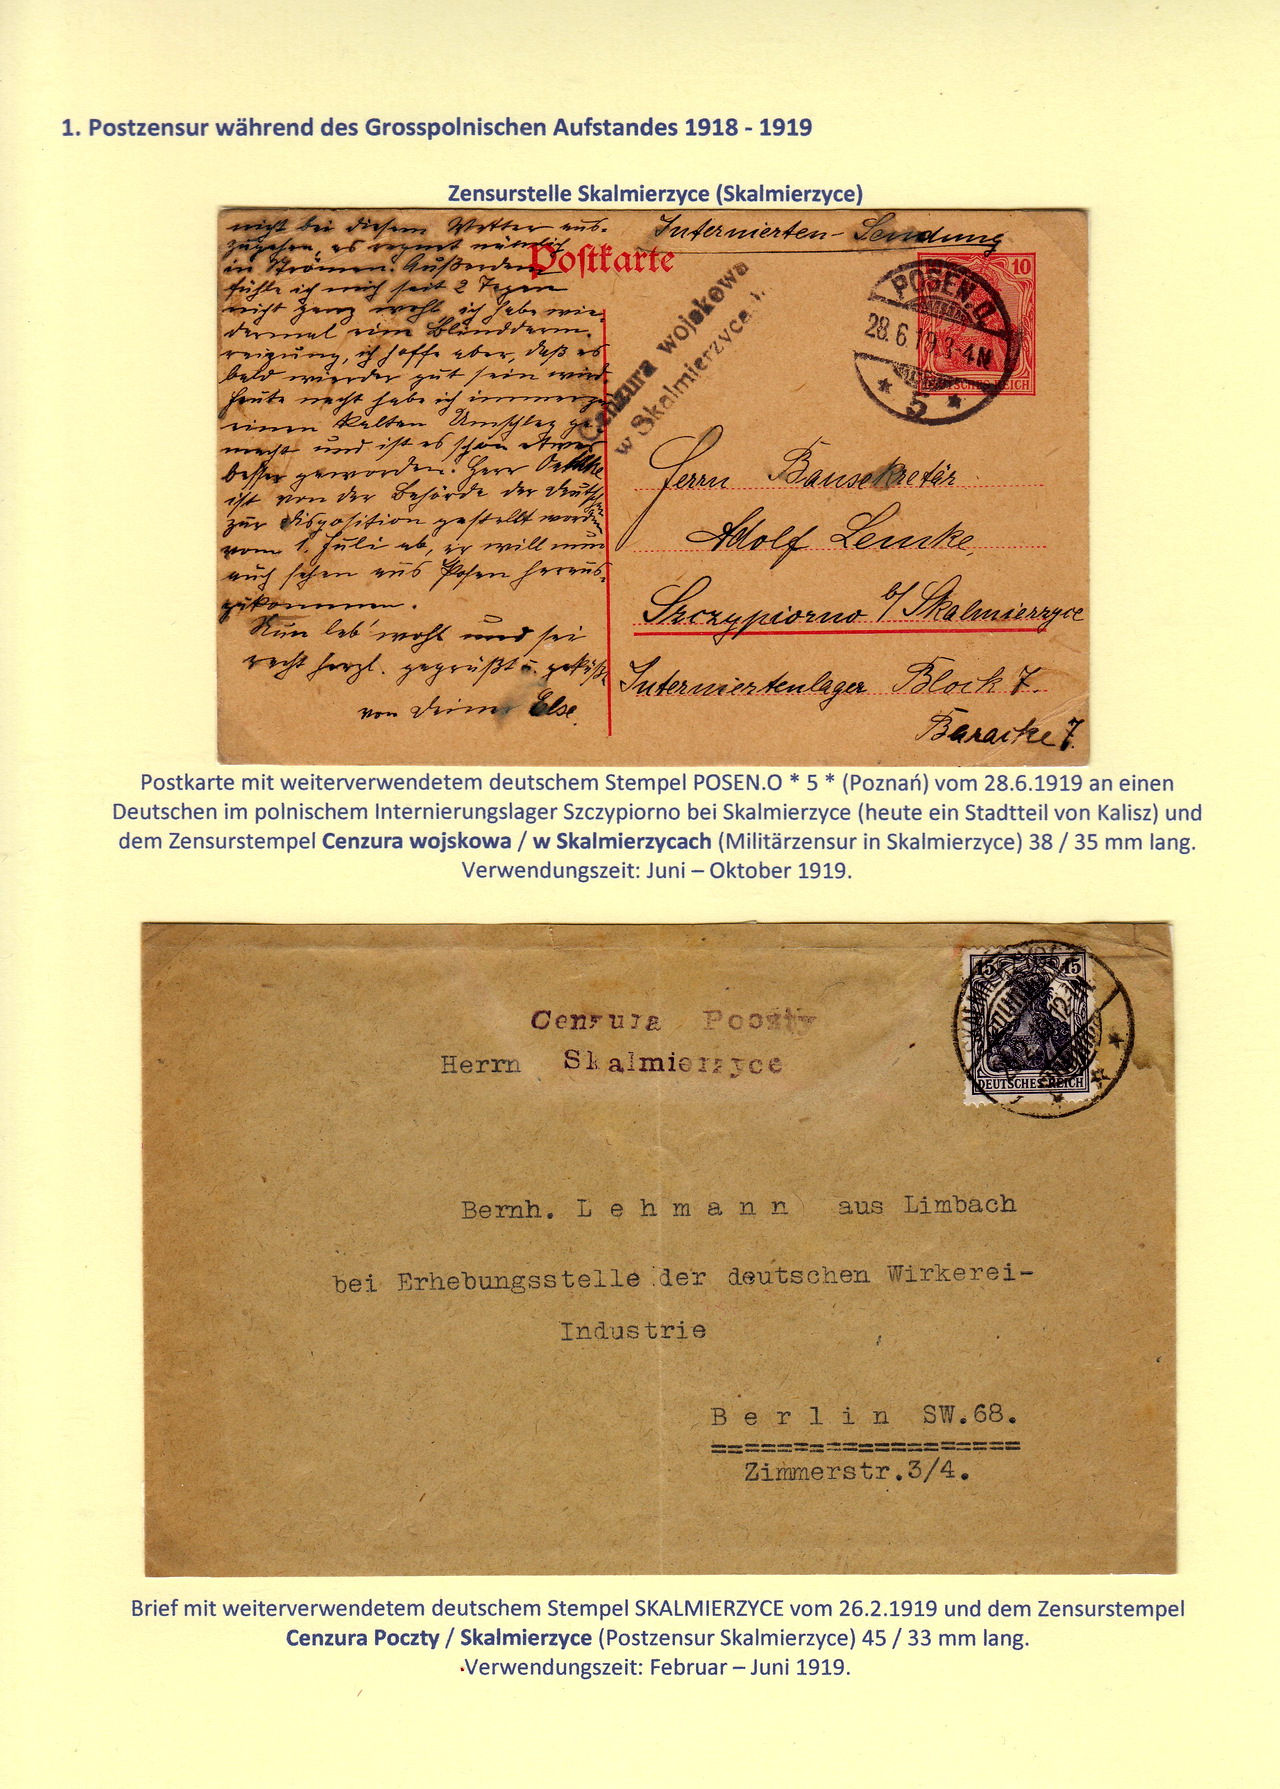 1. Postzensur während des Grosspolnischen Aufstandes 1918 - 1919
Zensurstelle Skalmierzyce (Skalmierzyce)
nicht bei diesem Wetter aus-
zugehen, es regnet nämlich
in Strömen. Außerdem
fühle ich mich seit 2 Tagen
nicht ganz wohl, ich habe wie-
dermal eine Blinddarm-
reizung, ich hoffe aber, daß es
bald wieder gut sein wird.
Heute nacht habe ich immerzu
einen kalten Umschlag ge-
macht und ist es schon etwas
besser geworden. Herr
ist von der Behörde der deutschen
zur Disposition gestellt worden
vom 1. Juli ab, er will nun
auch sehen aus Posen heraus-
zukommen.
Nun leb' wohl und sei
recht herzl. gegrüßt u. geküßt
von Deiner Else.
Internierten-Sendung
Postkarte
Cenzura wojskowa
w Skalmierzycach.
10
DEUTSCHES REICH
POSEN.O.
28.6.19.3-4N
* 5 *
Herrn Bausekretär
Adolf Lemke,
Szczypiorno b/ Skalmierzyce
Interniertenlager Block 7.
Baracke 7.
Postkarte mit weiterverwendetem deutschem Stempel POSEN.O * 5 * (Poznań) vom 28.6.1919 an einen
Deutschen im polnischem Internierungslager Szczypiorno bei Skalmierzyce (heute ein Stadtteil von Kalisz) und
dem Zensurstempel Cenzura wojskowa / w Skalmierzycach (Militärzensur in Skalmierzyce) 38 / 35 mm lang.
Verwendungszeit: Juni – Oktober 1919.
15 15
DEUTSCHES REICH
SKALMIERZYCE
Cenzura Poczty
Skalmierzyce
Herrn
Bernh. Lehmann aus Limbach
bei Erhebungsstelle der deutschen Wirkerei-
Industrie
Berlin SW.68.
===================
Zimmerstr.3/4.
Brief mit weiterverwendetem deutschem Stempel SKALMIERZYCE vom 26.2.1919 und dem Zensurstempel
Cenzura Poczty / Skalmierzyce (Postzensur Skalmierzyce) 45 / 33 mm lang.
Verwendungszeit: Februar – Juni 1919.